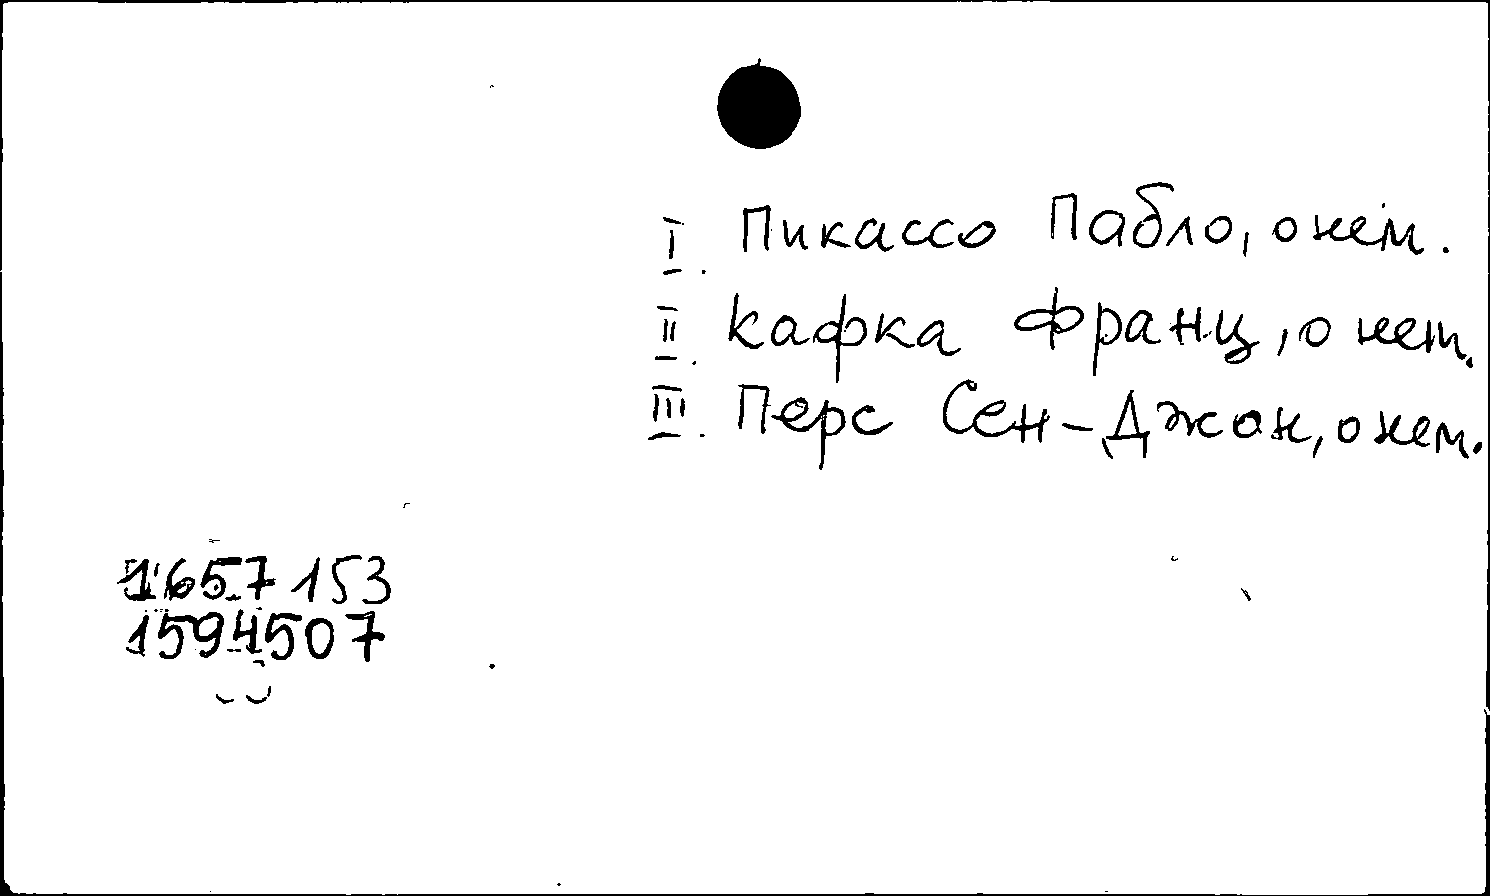 I. Пикассо Пабло, о нем.
II. Кафка Франц, о нем.
III. Перс Сен-Джон, о нем.
1657153
1594507